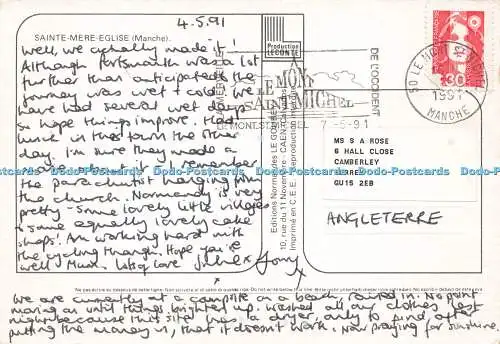 4.5.91
SAINTE-MERE-EGLISE (Manche).
Well, we actually made it!
Although Portsmouth was a lot
further than anticipated. The
journey was wet + cold. We
have had several wet days
so hope things improve. Had
lunch in this town the other
day. I'm sure they made a
about it - I remember
the parachutist hanging from
the church. Normandy is very
pretty - some lovely little villages
+ some equally lovely cake
shops! Am working hard with
the cycling though. Hope you're
well. Lots of love Julie x
We are currently at a campsite on a beach, rained in. No point
moving on until things brighten up. Washed all our clothes last
night because this site has a dryer, only to find after
putting the money in, that it doesn't work. Now praying for sunshine.
Production
LECONTE
Editions Normandes LE GOUBEY
10, rue du 11 Novembre - CAEN
Imprimé en C.E.E. - Reproduction
DE L'OCCIDENT
LE MONT
SAINT MICHEL
LE MONT ST MICHEL
7-5-91
50 LE MONT ST MICHEL
1991
MANCHE
MS S A ROSE
6 HALL CLOSE
CAMBERLEY
GU15 2EB
ANGLETERRE
Postcards Do-Postcards Do-Postcards Do-Postcards